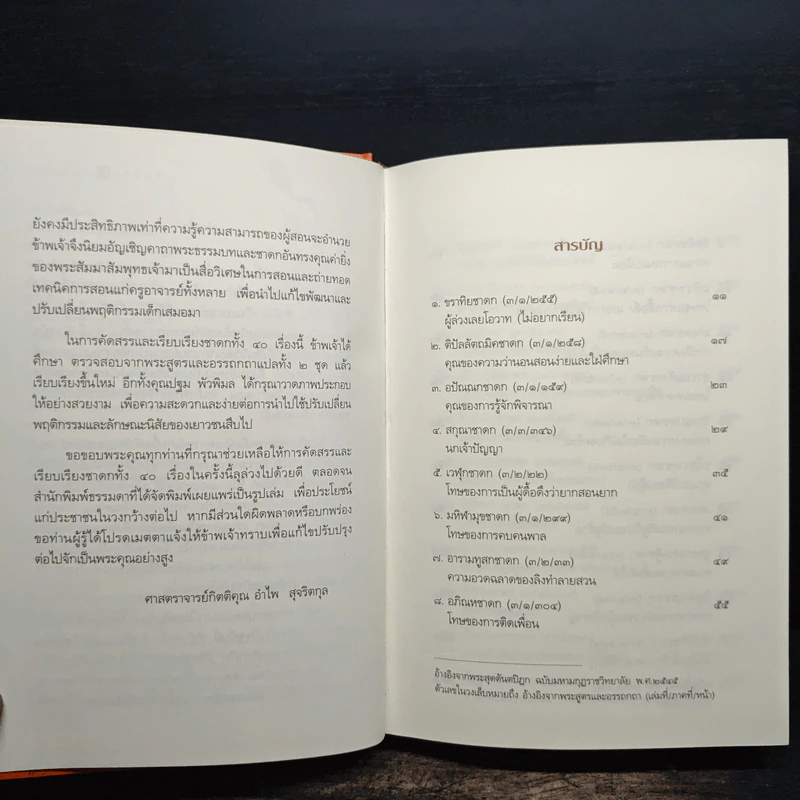 ยังคงมีประสิทธิภาพเท่าที่ความรู้ความสามารถของผู้สอนจะอำนวย
ข้าพเจ้าจึงนิยมอัญเชิญคาถาพระธรรมบทและชาดกอันทรงคุณค่ายิ่ง
ของพระสัมมาสัมพุทธเจ้ามาเป็นสื่อวิเศษในการสอนและถ่ายทอด
เทคนิคการสอนแก่ครูอาจารย์ทั้งหลาย เพื่อนำไปแก้ไขพัฒนาและ
ปรับเปลี่ยนพฤติกรรมเด็กเสมอมา
ในการคัดสรรและเรียบเรียงชาดกทั้ง ๔๐ เรื่องนี้ ข้าพเจ้าได้
ศึกษา ตรวจสอบจากพระสูตรและอรรถกถาแปลทั้ง ๒ ชุด แล้ว
เรียบเรียงขึ้นใหม่ อีกทั้งคุณปฐม พัวพิมล ได้กรุณาวาดภาพประกอบ
ให้อย่างสวยงาม เพื่อความสะดวกและง่ายต่อการนำไปใช้ปรับเปลี่ยน
พฤติกรรมและลักษณะนิสัยของเยาวชนสืบไป
ขอขอบพระคุณทุกท่านที่กรุณาช่วยเหลือให้การคัดสรรและ
เรียบเรียงชาดกทั้ง ๔๐ เรื่องในครั้งนี้ลุล่วงไปด้วยดี ตลอดจน
สำนักพิมพ์ธรรมดาที่ได้จัดพิมพ์เผยแพร่เป็นรูปเล่ม เพื่อประโยชน์
แก่ประชาชนในวงกว้างต่อไป หากมีส่วนใดผิดพลาดหรือบกพร่อง
ขอท่านผู้รู้ได้โปรดเมตตาแจ้งให้ข้าพเจ้าทราบเพื่อแก้ไขปรับปรุง
ต่อไปจักเป็นพระคุณอย่างสูง
ศาสตราจารย์กิตติคุณ อำไพ สุจริตกุล
สารบัญ
๑. ขราทิยชาดก (๓/๑/๒๕๕) ๑๑
ผู้ล่วงเลยโอวาท (ไม่อยากเรียน)
๒. ติปัลลัตถมิคชาดก (๓/๑/๒๕๘) ๑๗
คุณของความว่านอนสอนง่ายและใฝ่ศึกษา
๓. อปัณณกชาดก (๓/๑/๑๕๙) ๒๓
คุณของการรู้จักพิจารณา
๔. สกุณาชาดก (๓/๓/๓๔๖) ๒๙
นกเจ้าปัญญา
๕. เวฬุกชาดก (๓/๒/๒๒) ๓๕
โทษของการเป็นผู้ดื้อดึงว่ายากสอนยาก
๖. มหิฬามุขชาดก (๓/๑/๒๙๙) ๔๑
โทษของการคบคนพาล
๗. อารามทูสกชาดก (๓/๒/๓๓) ๔๙
ความอวดฉลาดของลิงทำลายสวน
๘. อภิณหชาดก (๓/๑/๓๐๔) ๕๕
โทษของการติดเพื่อน
อ้างอิงจากพระสุตตันตปิฎก ฉบับมหามกุฏราชวิทยาลัย พ.ศ.๒๕๔๕
ตัวเลขในวงเล็บหมายถึง อ้างอิงจากพระสูตรและอรรถกถา (เล่มที่/ภาคที่/หน้า)